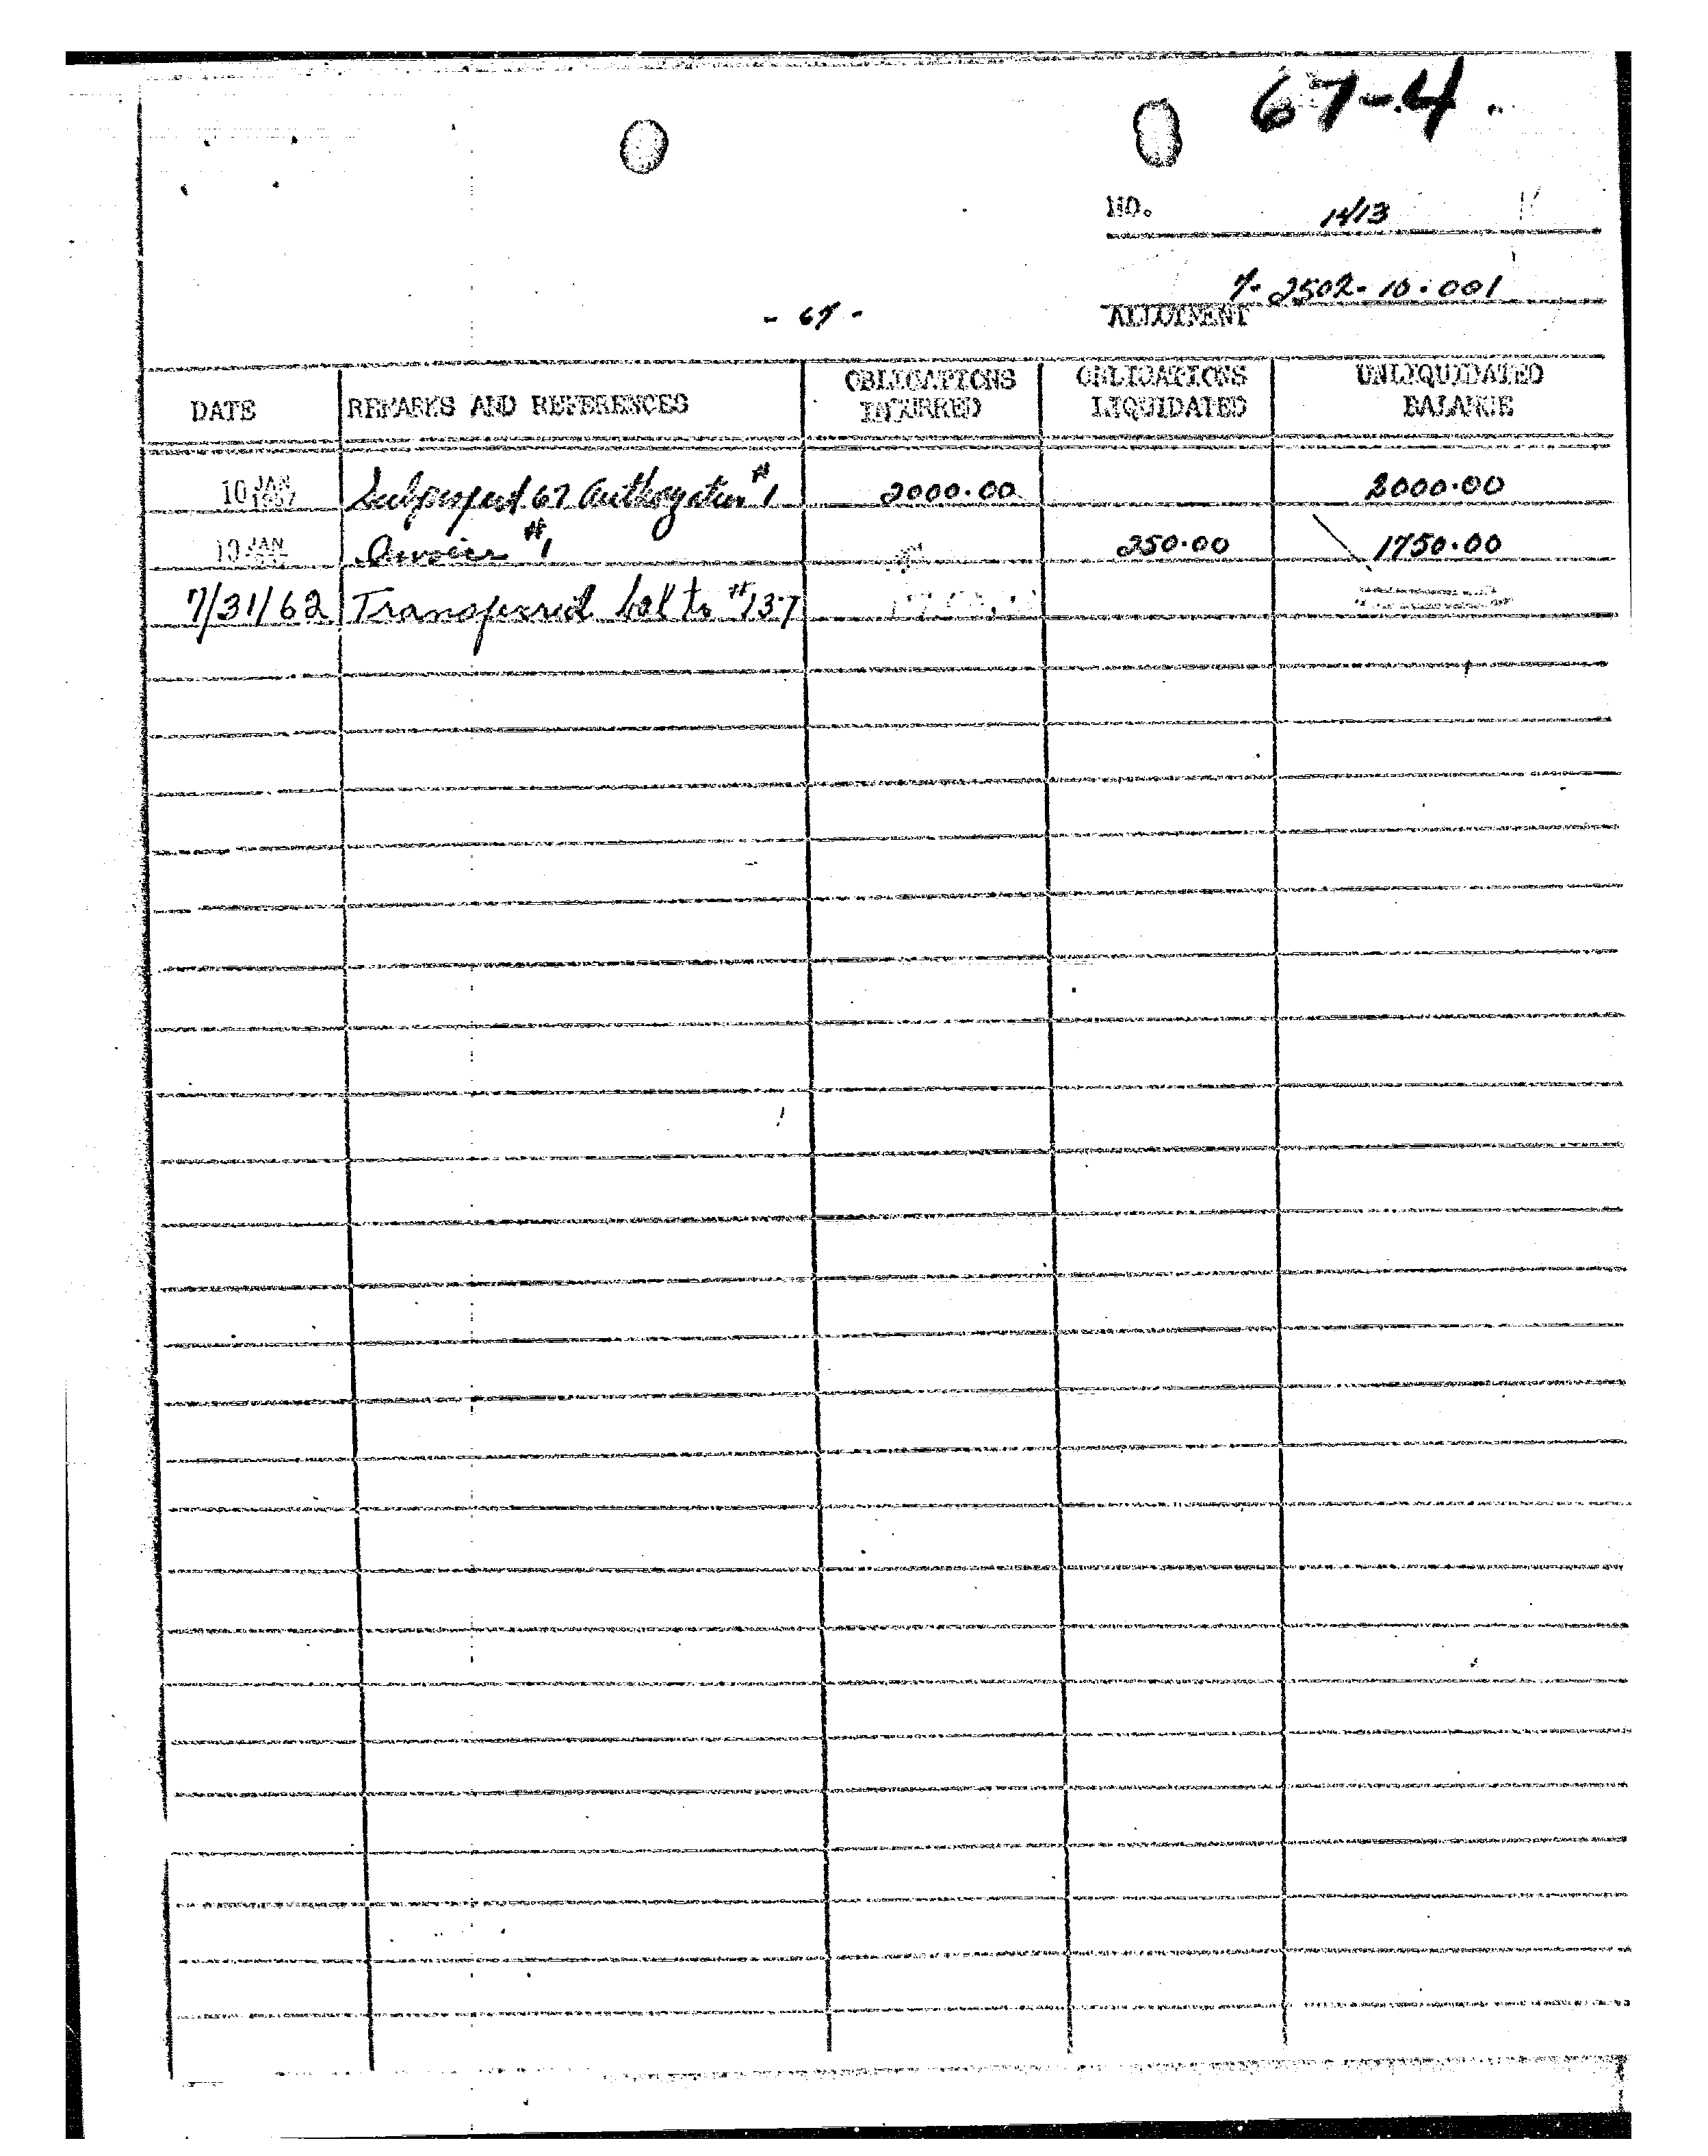 67-4.
NO. 1413
7-2502-10-001
- 67 - ALLOTMENT
DATE REMARKS AND REFERENCES OBLIGATIONS INCURRED OBLIGATIONS LIQUIDATED UNLIQUIDATED BALANCE
10 JAN 1957 Subproject 67 Authorization #1 2000.00 2000.00
10 JAN Invoice #1 250.00 1750.00
7/31/62 Transferred bal to #137